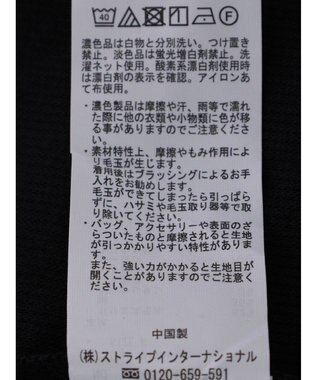 40
F
濃色品は白物と分別洗い。つけ置き
禁止。淡色品は蛍光増白剤禁止。洗
濯ネット使用。酸素系漂白剤使用時
は漂白剤の表示を確認。アイロンあ
て布使用。
・濃色製品は摩擦や汗、雨等で濡れ
た際に他の衣類や小物類に色が移る
ことがありますのでご注意くださ
い。
・素材特性上、摩擦やもみ作用によ
り毛玉が生じます。
着用後はブラッシングによるお手
入れをお勧めします。
毛玉ができてしまったら引っぱら
ずに、ハサミや毛玉取り器等で取
り除いてください。
・バッグ、アクセサリーや表面のざ
らついたものと摩擦されると生地
が引っかかりやすい特性がありま
す。
また、強い力がかかると生地目が
開くことがありますのでご注意く
ださい。
中国製
(株)ストライプインターナショナル
0120-659-591